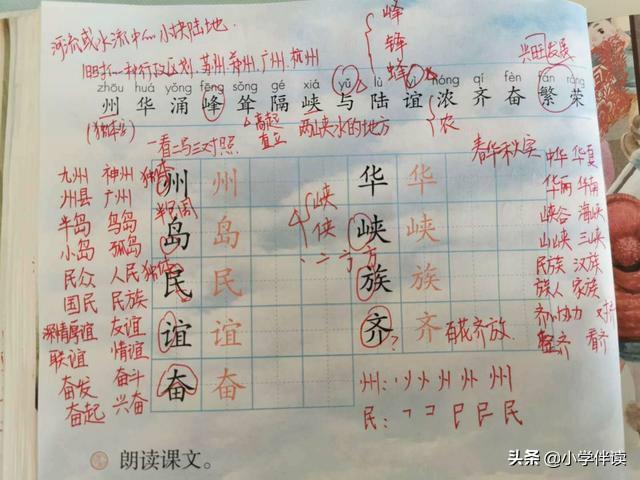 河流或水流中心小块陆地.
旧时的一种行政区划.苏州 郑州 广州 杭州
峰
锋
蜂
兴旺发展
zhōu huá yǒng fēng sǒng gé xiá yǔ lù yì nóng qí fèn fán róng
州 华 涌 峰 耸 隔 峡 与 陆 谊 浓 齐 奋 繁 荣
(独体字)
高起
直立
两峡水的地方
农
一看二写三对照.
春华秋实
九州 神州 独体
州 州 华 华
中华 华夏
州县 广州
华丽 华侨
半岛 鸟岛
半包围
岛 岛 峡 峡
峡
侠
峡谷 海峡
小岛 孤岛
山峡 三峡
民众 人民 独体
民 民 族 族
民族 汉族
国民 民族
族人 家族
深情厚谊 友谊
谊 谊 齐 齐
百花齐放.
齐心协力 对齐
联谊 情谊
整齐 看齐
奋发 奋斗
奋 奋
州:
州
奋起 兴奋
民:
民
朗读课文。
头条 @小学伴读